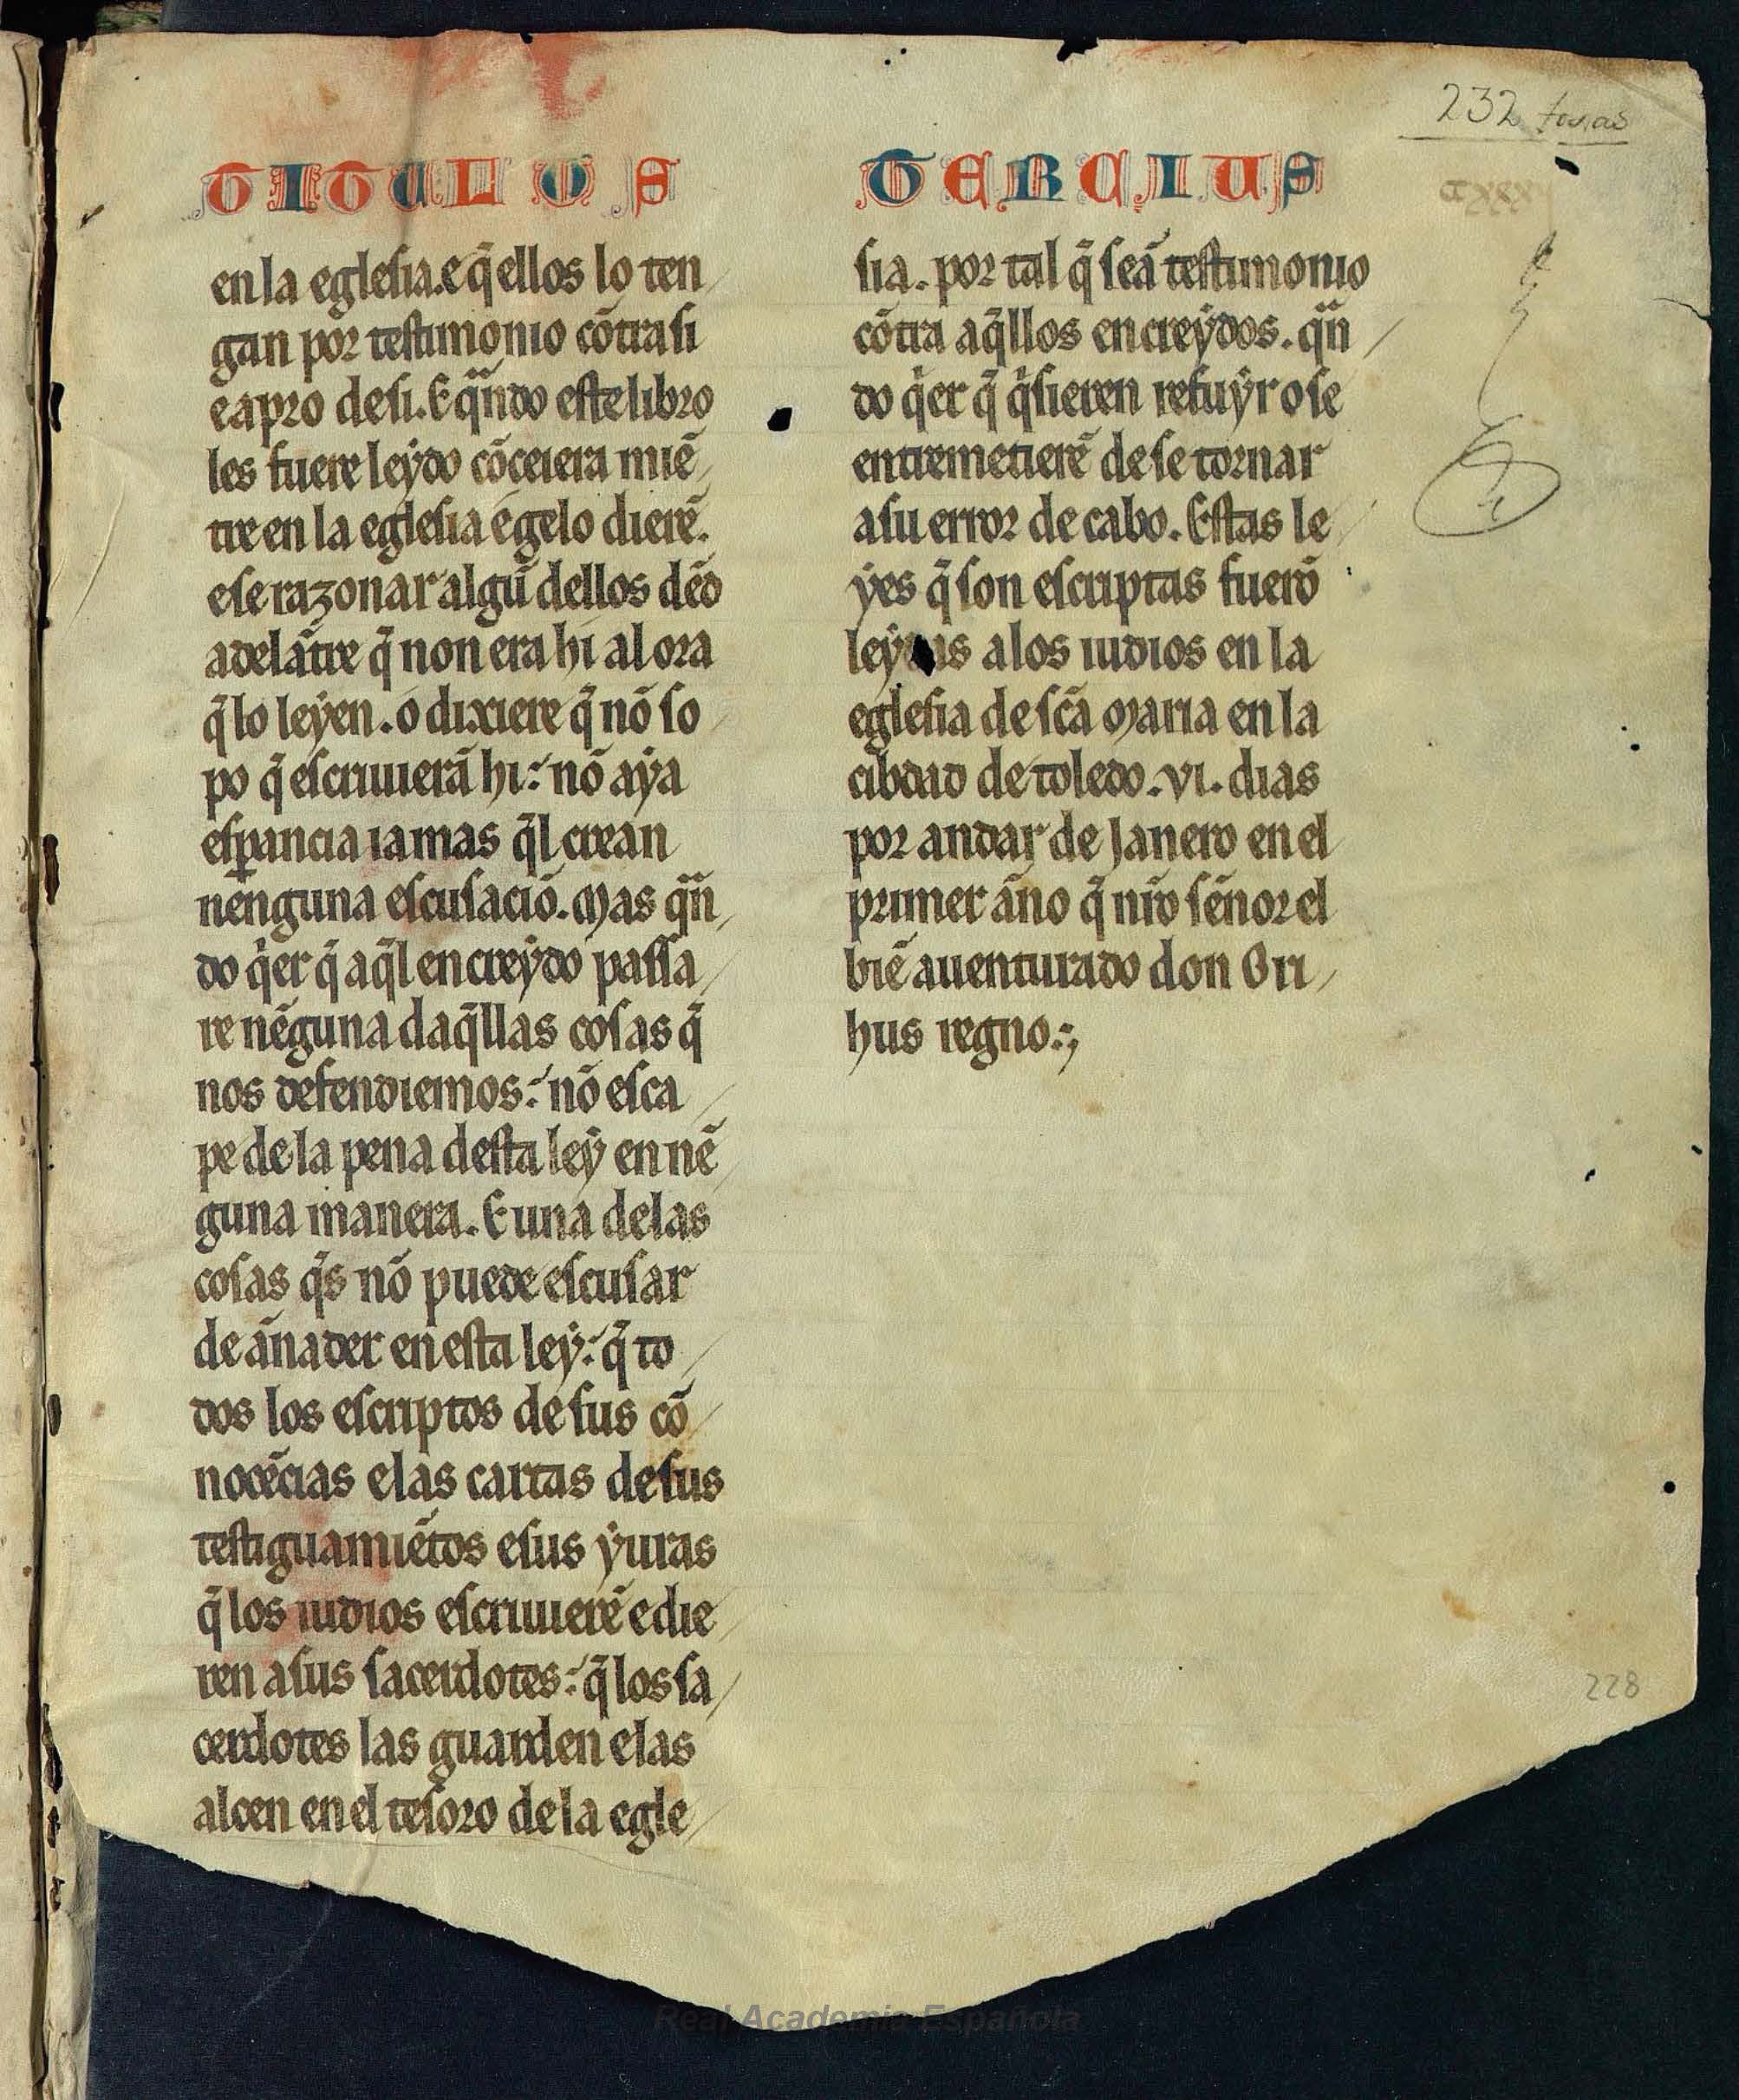 232 foxas
TITULOS TERCIUS
en la eglesia. e q̃ ellos lo ten
gan por testimonio cõtra si
e a pro de si. E qũndo este libro
les fuere leẏdo cõceiera miẽ
tre en la eglesia e gelo dierẽ.
e se razonar algũ dellos dẽd
adelãtre q̃ non era hi al ora
q̃ lo leẏen. o dixiere q̃ nõ so
po q̃ escriuierã hi: nõ aẏa
esꝑancia iamas q̃l crean
nenguna escusaciõ. Mas qũn
do q̇er q̃ aq̃l encreẏdo passa
re nẽguna daq̃llas cosas q̃
nos defendiemos: nõ esca
pe de la pena desta leẏ en nẽ
guna manera. E una delas
cosas q̃s nõ puede escusar
de ãnader en esta leẏ: q̃ to
dos los escriptos de sus cõ
nocẽcias e las cartas de sus
testiguamiẽtos e sus ẏuras
q̃ los iudios escriuierẽ e die
ren a sus sacerdotes: q̃ los sa
cerdotes las guarden e las
alcen en el tesoro de la egle
sia. por tal q̃ seã testimonio
cõtra aq̃llos encreẏdos. qũn
do q̇er q̃ q̇sieren refuẏr o se
entremetierẽ de se tornar
a su error de cabo. Estas le
ẏes q̃ son escriptas fuerõ
leẏdas a los iudios en la
eglesia de sc̃a Maria en la
cibdad de toledo. vi. dias
por andar de Janero en el
primer ãno q̃ nr̃o sẽnor el
biẽ auenturado don Bri
hus regno:;
228
Real Academia Española